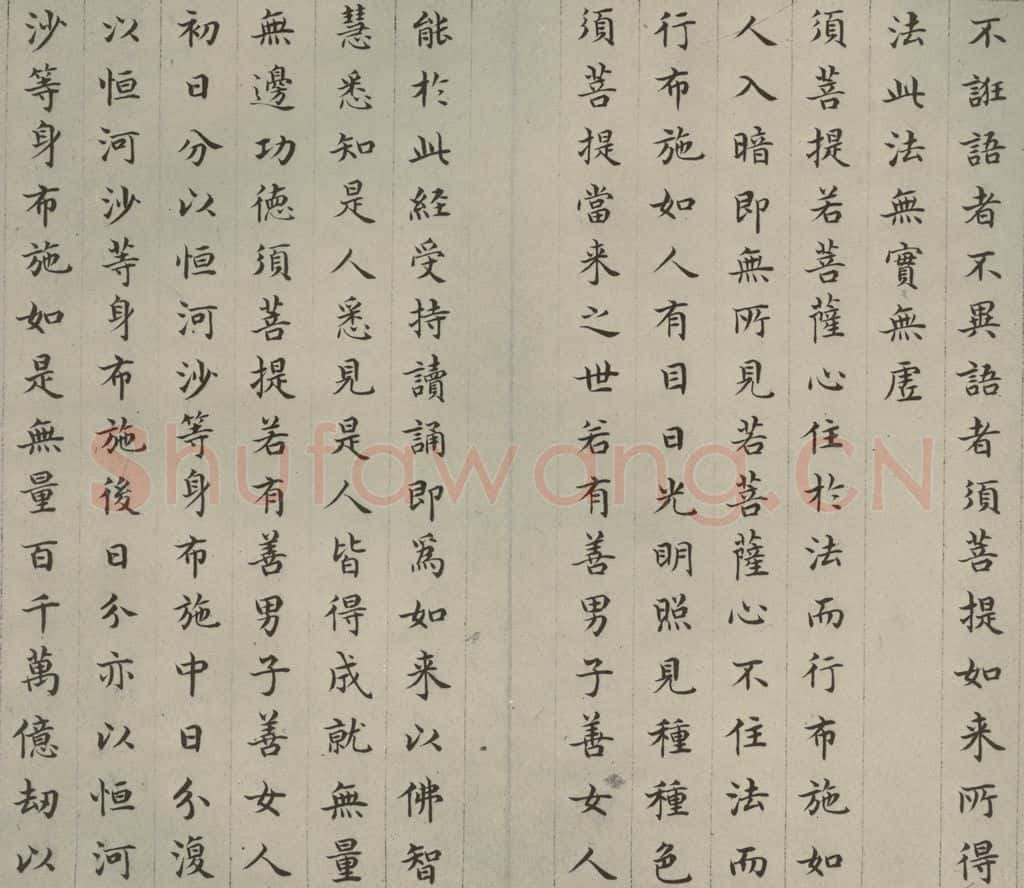 不誑語者不異語者須菩提如来所得
法此法無實無虛
須菩提若菩薩心住於法而行布施如
人入暗即無所見若菩薩心不住法而
行布施如人有目日光明照見種種色
須菩提當来之世若有善男子善女人
能於此経受持讀誦即為如来以佛智
慧悉知是人悉見是人皆得成就無量
無邊功徳須菩提若有善男子善女人
初日分以恒河沙等身布施中日分復
以恒河沙等身布施後日分亦以恒河
沙等身布施如是無量百千萬億劫以
Shufawang.CN